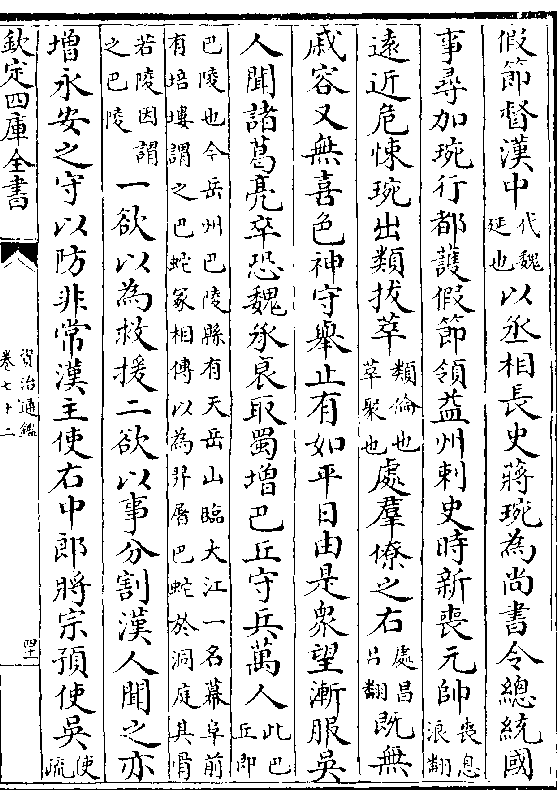 假節督漢中代魏延也以丞相長史蔣琬為尚書令總統國
事尋加琬行都護假節領益州刺史時新喪元帥喪息浪翻
遠近危悚琬出類拔萃類倫也草聚也處羣僚之右處昌吕翻既無
戚容又無喜色神守舉止有如平日由是衆望漸服吳
人聞諸葛亮卒恐魏承衰取蜀增巴丘守兵萬人此巴丘即
巴陵也今岳州巴陵縣有天岳山臨大江一名幕阜前有培塿謂之巴蛇冢相傳以為羿屠巴蛇於洞庭其骨
若陵因謂之巴陵一欲以為救援二欲以事分割漢人聞之亦
增永安之守以防非常漢主使右中郎將宗預使吳使疏
欽定四庫全書
資治通鑑
卷七十二
四十